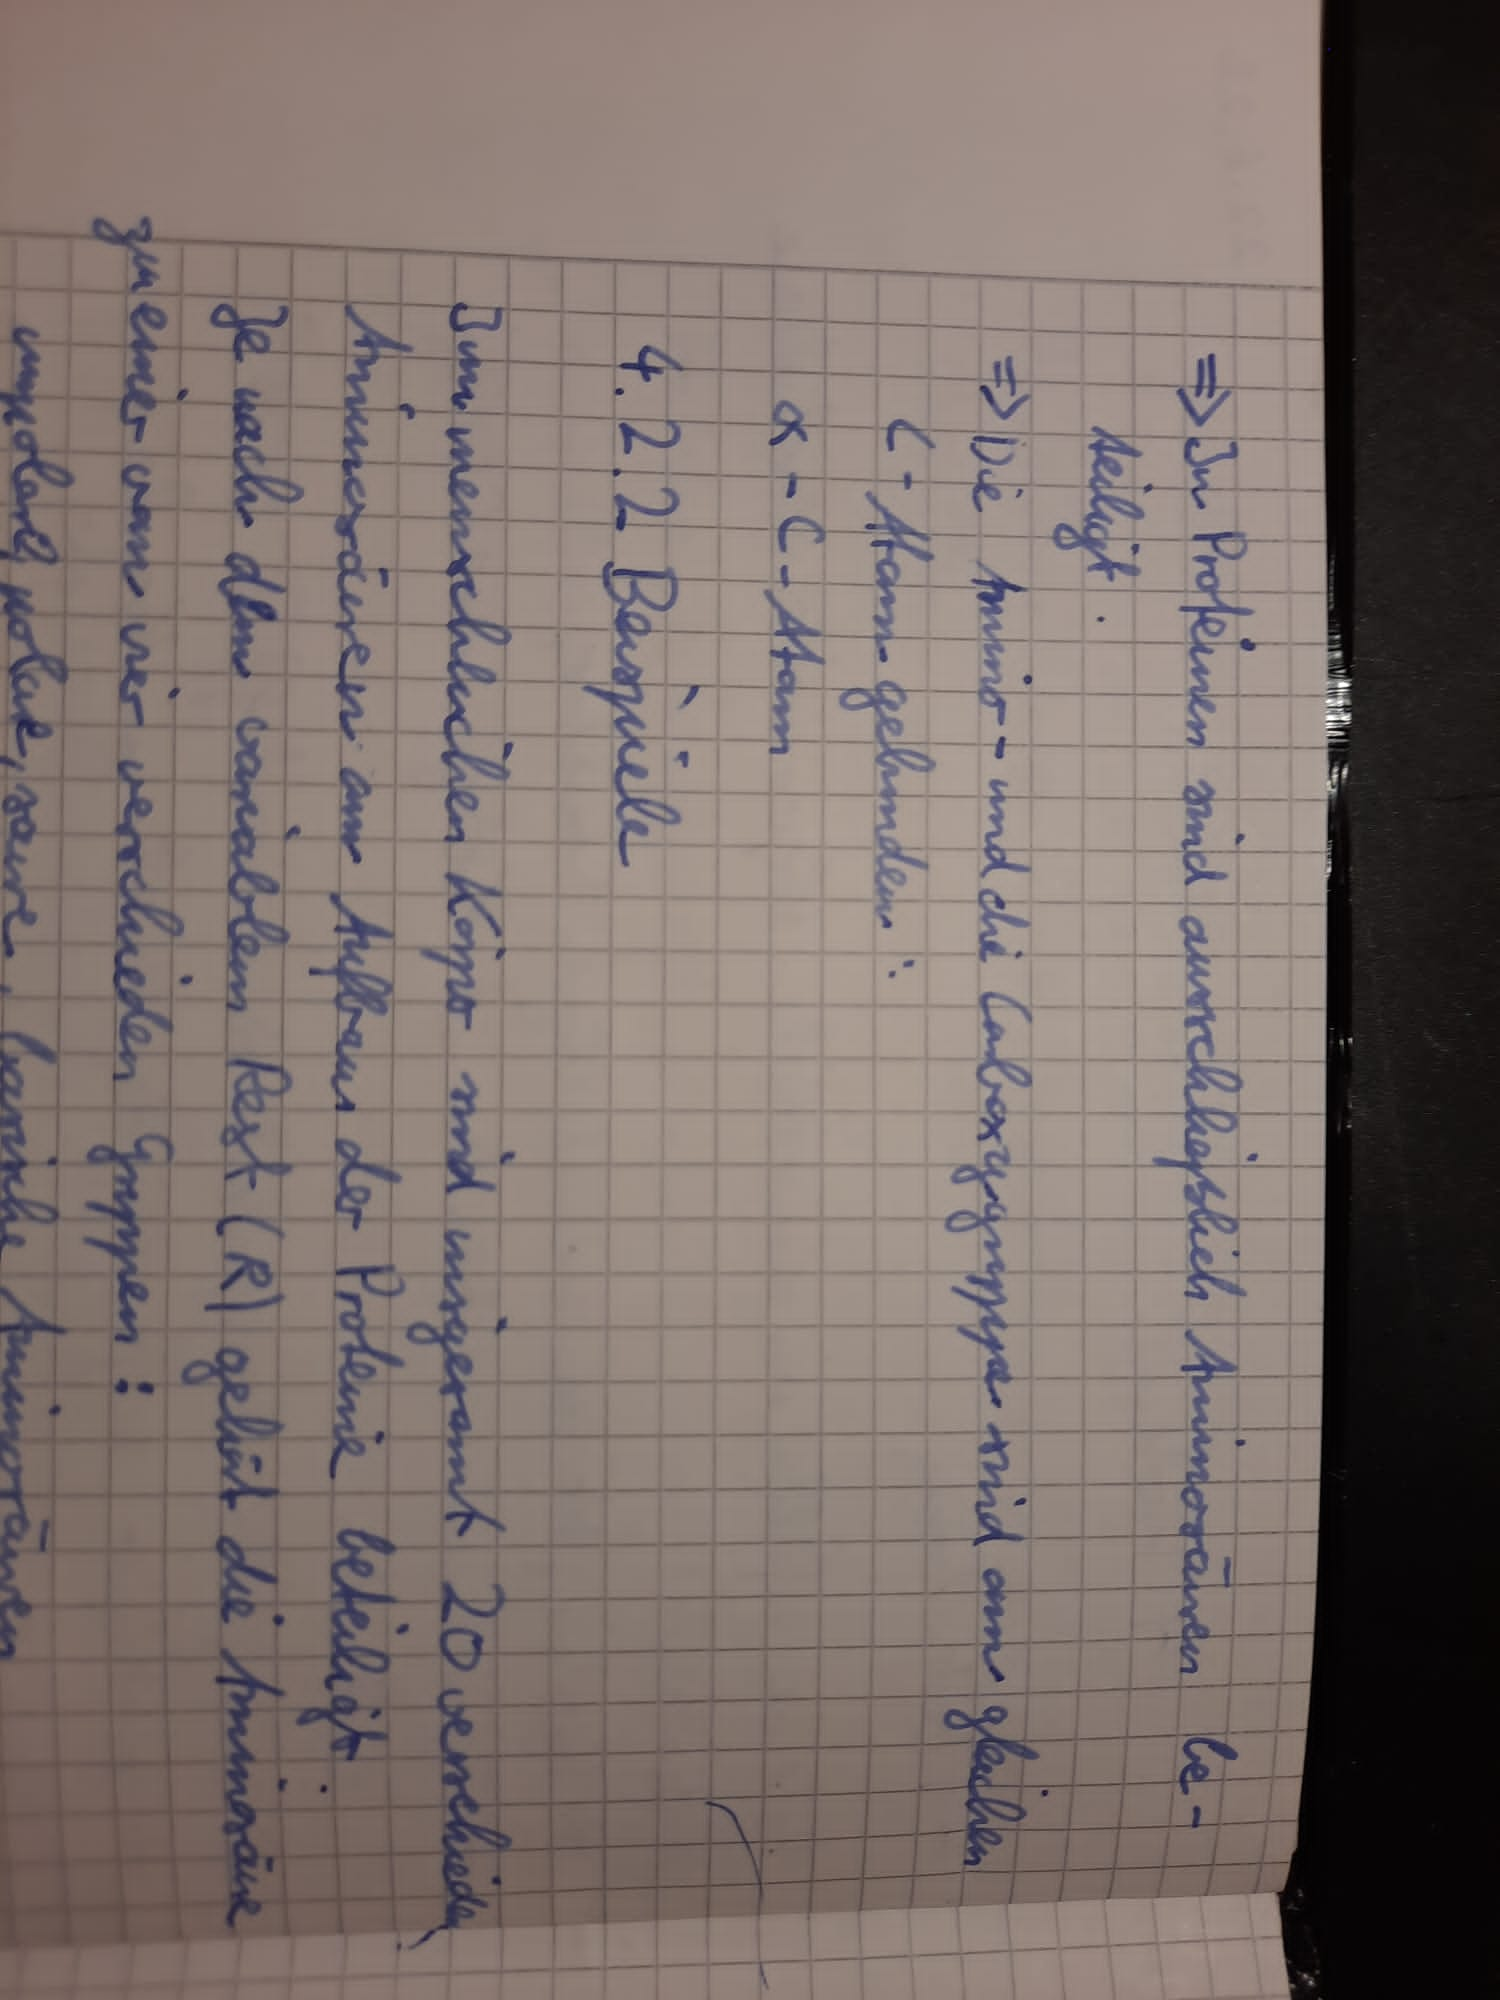 => In Proteinen sind ausschließlich Aminosäuren be-
teiligt.
=> Die Amino- und die Carboxygruppe sind am gleichen
C-Atom gebunden:
α-C-Atom
4.2.2 Beispiele
Im menschlichen Körper sind insgesamt 20 verschieden
Aminosäuren am Aufbau der Proteine beteiligt.
Je nach dem variablem Rest (R) gehört die Aminosäure
zu einer von vier verschieden Gruppen:
unpolare, polare, saure, basische Aminosäuren